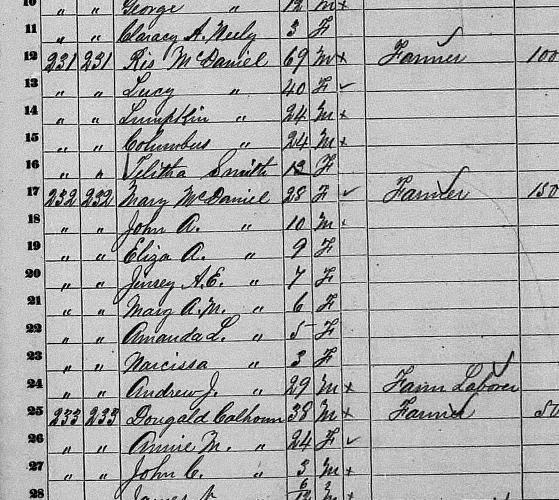 10 " " George " 12 m x
11 " " Claracy A. Neely 3 F
12 231 231 Ris McDaniel 69 m x Farmer 100
13 " " Lucy " 40 F ✓
14 " " Lumpkin " 24 m x
15 " " Columbus " 24 m x
16 " " Telitha Smith 13 F
17 232 232 Mary McDaniel 28 F ✓ Farmer 150
18 " " John A. " 10 m
19 " " Eliza A. " 9 F
20 " " Jinsey A.E. " 7 F
21 " " Mary A.M. " 6 F
22 " " Amanda L. " 5 F
23 " " Narcissa " 3 F
24 " " Andrew J. " 29 m x Farm Laborer
25 233 233 Dougald Calhoun 38 m x Farmer
26 " " Annie M. " 24 F ✓
27 " " John C. " 3 m x
28 James " 6/12 m x